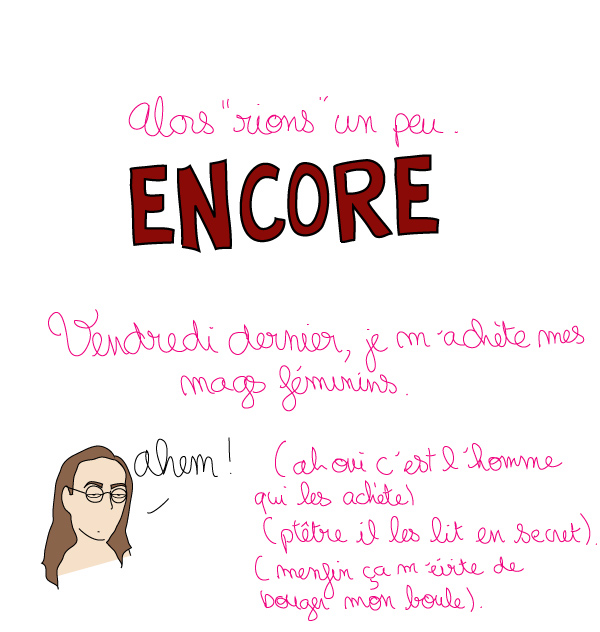 Alors "rions" un peu.
ENCORE
Vendredi dernier, je m'achète mes
mags féminins.
ahem !
(ah oui c'est l'homme
qui les achète)
(ptêtre il les lit en secret).
(menfin ça m'évite de
bouger mon boule).